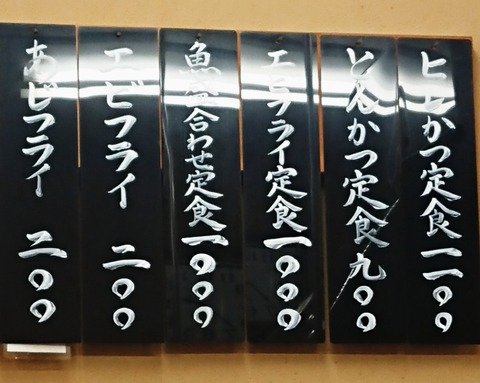 ヒレかつ定食 一一〇〇
とんかつ定食 九〇〇
エビフライ定食 一〇〇〇
魚盛合わせ定食 一〇〇〇
エビフライ 二〇〇
あじフライ 二〇〇